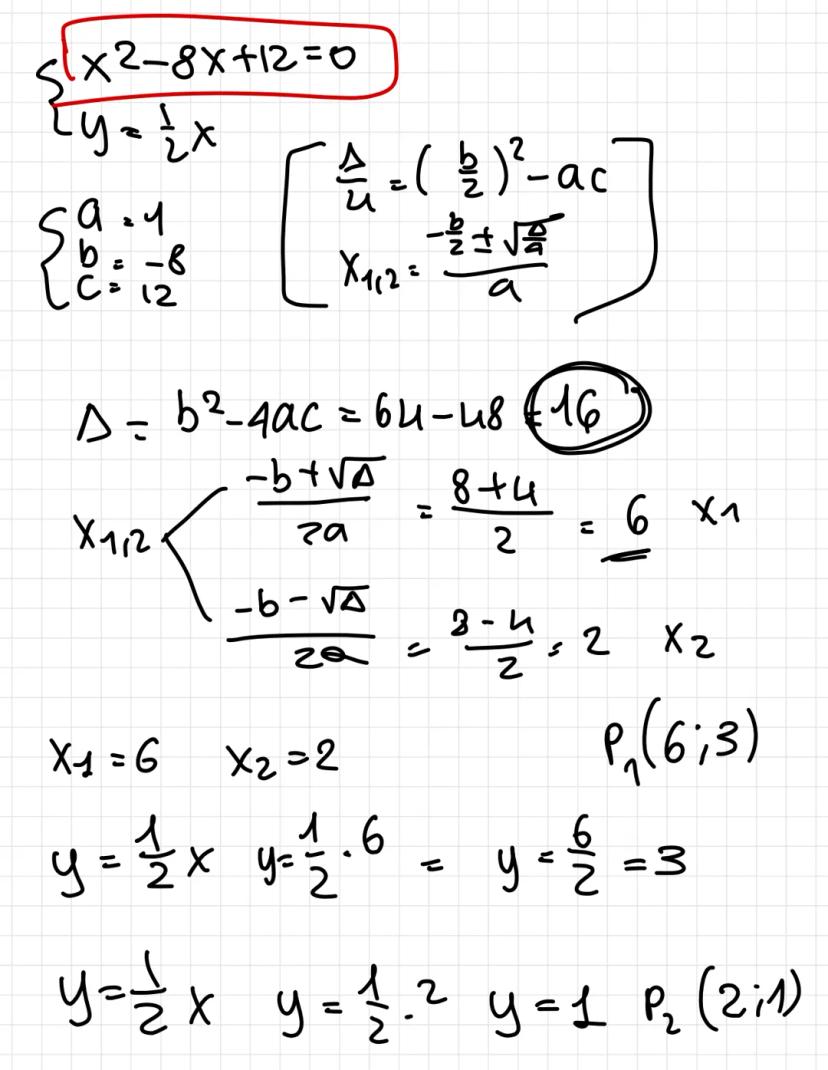 x2-8x+12=0
y=1/2x
a=1
b=-8
c=12
Δ/4=(b/2)²-ac
x1,2=(-b/2±√Δ/4)/a
Δ=b²-4ac=64-48=16
x1,2
(-b+√Δ)/2a=(8+4)/2=6 x1
(-b-√Δ)/2a=(8-4)/2=2 x2
x1=6 x2=2 P1(6;3)
y=1/2x y=1/2·6 = y=6/2=3
y=1/2x y=1/2·2 y=1 P2(2;1)